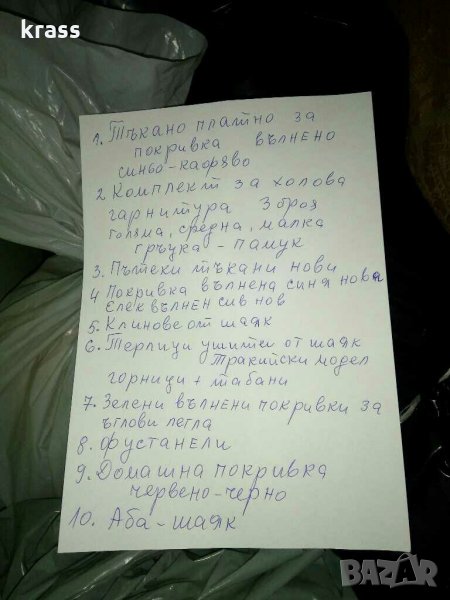 krass
1. Тъкано платно за
покривка вълнено
синьо-кафяво
2 Комплект за холова
гарнитура 3 броя
голяма, средна, малка
гръцка - памук
3. Пътеки тъкани нови
4 Покривка вълнена синя нова
Елек вълнен сив нов
5. Клинове от шаяк
6. Терлици ушити от шаяк
Тракийски модел
горници + табани
7. Зелени вълнени покривки за
ъглови легла
8. Фустанели
9. Домашна покривка
червено-черно
10. Аба - шаяк
BAZAR